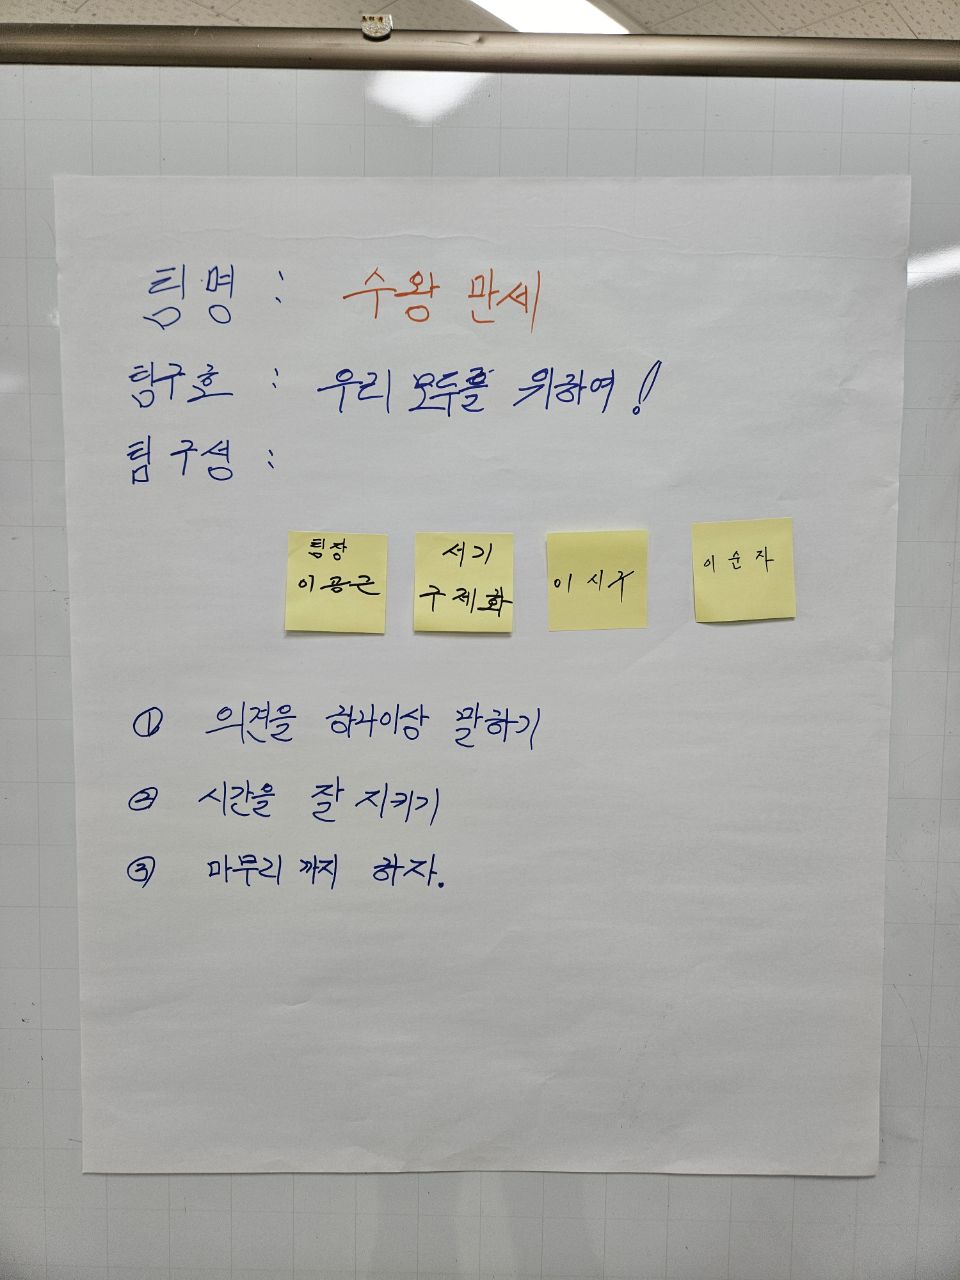 팀명 : 수왕 만세
팀구호 : 우리 모두를 위하여!
팀 구성 :
팀장
이광근
서기
구제화
이시구
이순자
① 의견을 하나이상 말하기
② 시간을 잘 지키기
③ 마무리 까지 하자.